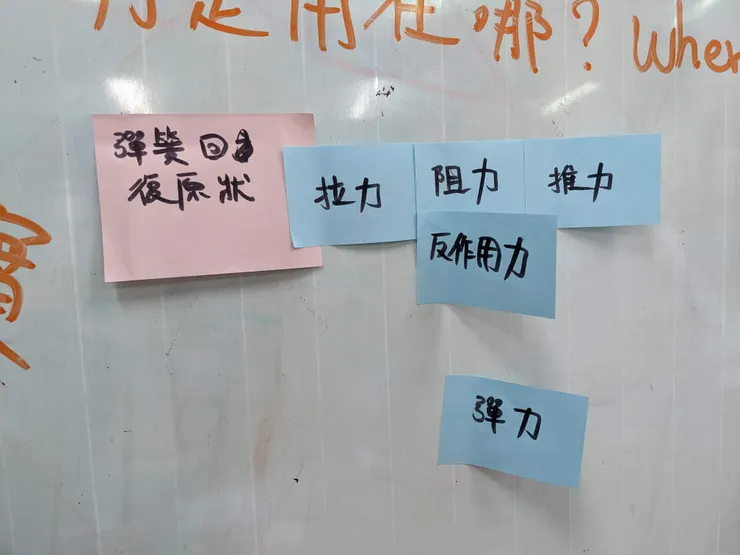 是用在哪?
彈簧回
復原狀
拉力
阻力
推力
反作用力
彈力